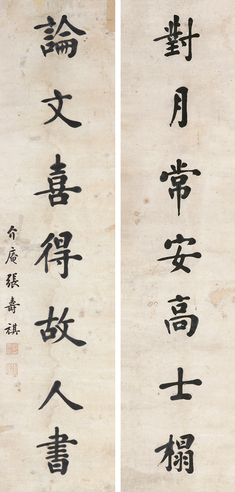 對月常安高士榻
論文喜得故人書
介庵張壽祺